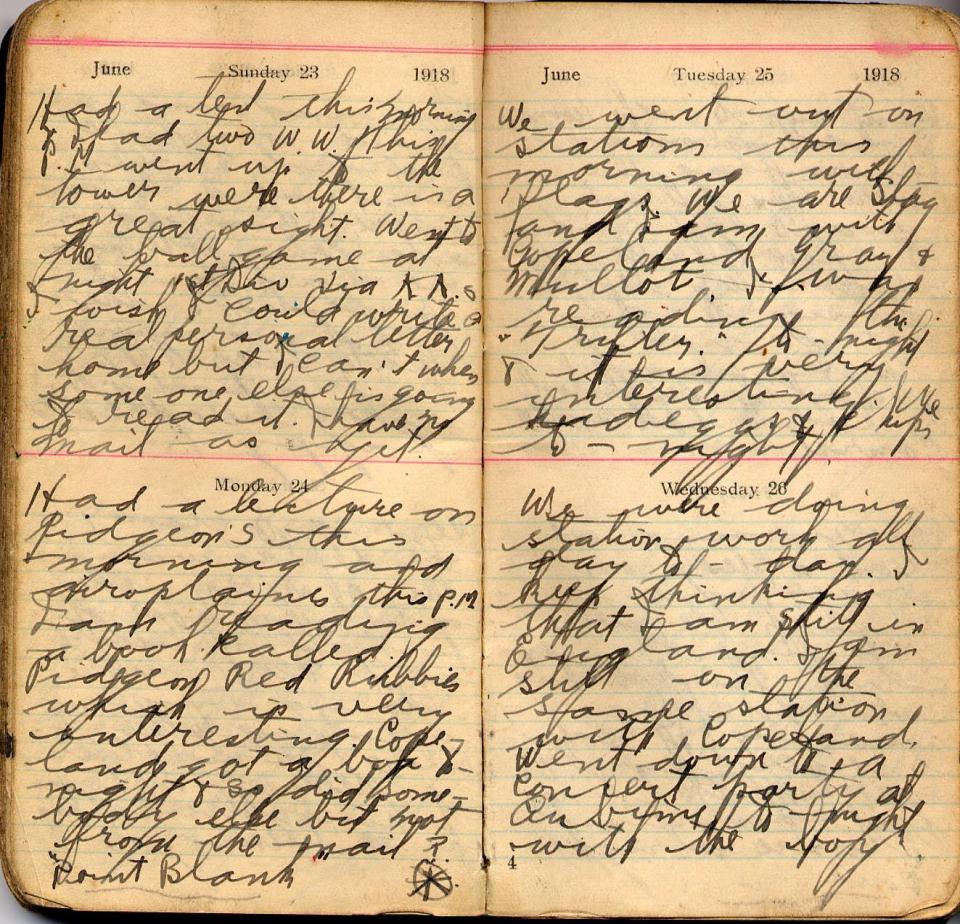 June Sunday 23 1918
Had a test this morning
& had two W.W. this
P.M went up to the
tower were there is a
great sight. Went to
the ball game at
night 1st Div
wish I could write a
real personal letter
home but I can't when
some one else is going
to read it. I have no
mail as yet.
Monday 24
Had a lecture on
Pidgeon's this
morning and
airoplaines this P.M
I am reading
a book called
Pidgeon Red Rubbies
which is very
interesting. Cope-
land got a box to-
night & so did some-
body else but not
from the mail ?
"Point Blank"
June Tuesday 25 1918
We went out on
stations this
morning with
flags. We are
and I am with
Copeland Gray &
Mullot I was
reading the
"Trifler." to-night
& it is very
interesting. We
had eggs & chips
to-night
Wednesday 26
We were doing
station work all
day to-day. I
keep thinking
that I am still in
England. I am
still on the
same station
with Copeland.
Went down to a
Concert party at
to-night
with the boys
4